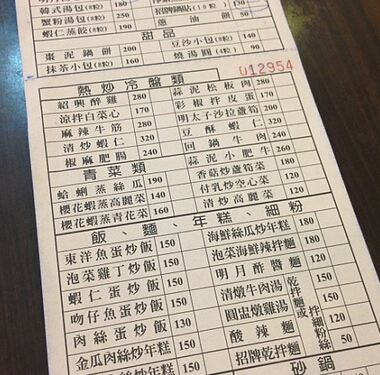 韓式湯包(8粒) 180
蟹粉湯包(8粒) 250
蝦仁蒸餃(8粒) 190
招牌鍋貼(10粒) 130
蔥油餅 50
甜品
棗泥鍋餅 200
抹茶小包(8粒) 160
豆沙小包(8粒)
燒湯圓(4粒) 90
012954
熱炒冷盤類
紹興醉雞 280
涼拌白菜心 170
麻辣牛筋 280
清炒蝦仁 320
椒麻肥腸 240
蒜泥松板肉 280
彩椒拌皮蛋 170
明太子沙拉蘆筍 200
豆酥蝦仁 320
回鍋牛肉 240
蒜泥小肥牛 260
青菜類
蛤蜊蒸絲瓜 190
櫻花蝦蒸高麗菜 140
櫻花蝦蒸青花菜 160
香菇炒蘆筍菜 180
付乳炒空心菜 120
清炒高麗菜 120
飯、麵、年糕、細粉
東洋魚蛋炒飯 150
泡菜雞丁炒飯 150
蝦仁蛋炒飯 150
吻仔魚蛋炒飯 150
肉絲蛋炒飯 130
金瓜肉絲炒年糕 150
海鮮絲瓜炒年糕 150
泡菜海鮮辣拌麵 150
明月酢醬麵 120
清燉牛肉湯
圓盅燉雞湯
酸辣麵
招牌乾拌麵
乾拌麵或
拌細粉絲 50
砂鍋